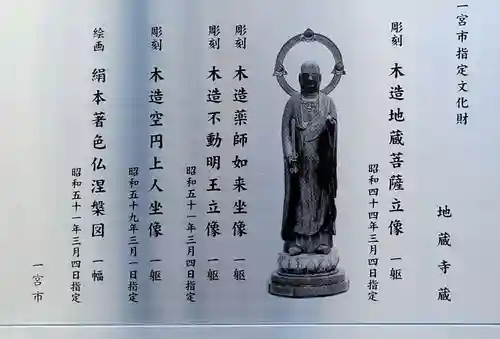 一宮市指定文化財
地蔵寺蔵
彫刻 木造地蔵菩薩立像 一躯
昭和四十四年三月四日指定
彫刻 木造薬師如来坐像 一躯
彫刻 木造不動明王立像 一躯
昭和五十一年三月四日指定
彫刻 木造空円上人坐像 一躯
昭和五十九年三月一日指定
絵画 絹本著色仏涅槃図 一幅
昭和五十一年三月四日指定
一宮市